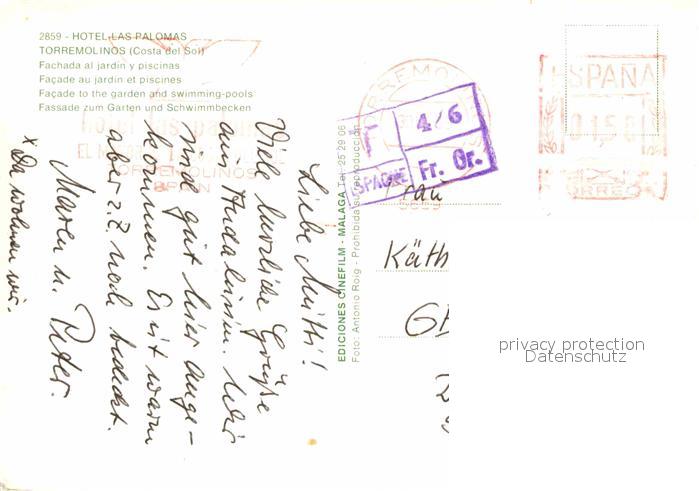 2859 - HOTEL LAS PALOMAS
TORREMOLINOS (Costa del Sol)
Fachada al jardin y piscinas
Façade au jardin et piscines
Façade to the garden and swimming-pools
Fassade zum Garten und Schwimmbecken
Liebe Mutti!
Viele herzliche Grüße
aus Andalusien. Wir
sind gut hier ange-
kommen. Es ist warm
aber z.Z. noch bedeckt.
Maren u. Peter.
x Da wohnen wir.
EDICIONES CINEFILM - MALAGA Tel. 25 29 06
Foto: Antonio Roig - Prohibida su reproducción
T 4/6
ESPAGNE Fr. Or.
ESPAÑA
CORREOS
TORREMOLINOS
SPAIN
Frau
Käth
privacy protection
Datenschutz